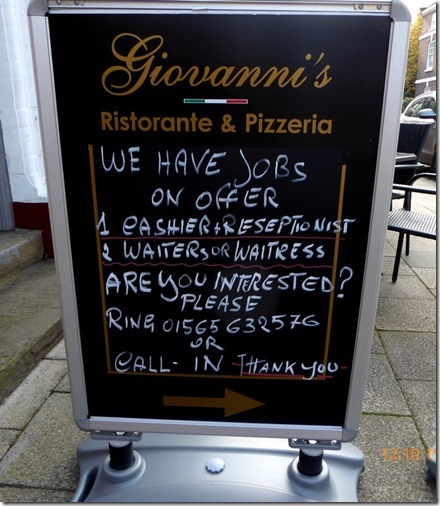 Giovanni's
Ristorante & Pizzeria
WE HAVE JOBS
ON OFFER
1 CASHIER + RESEPTIONIST
2 WAITERS OR WAITRESS
ARE YOU INTERESTED?
PLEASE
RING 01565 632576
OR
CALL - IN THANK YOU